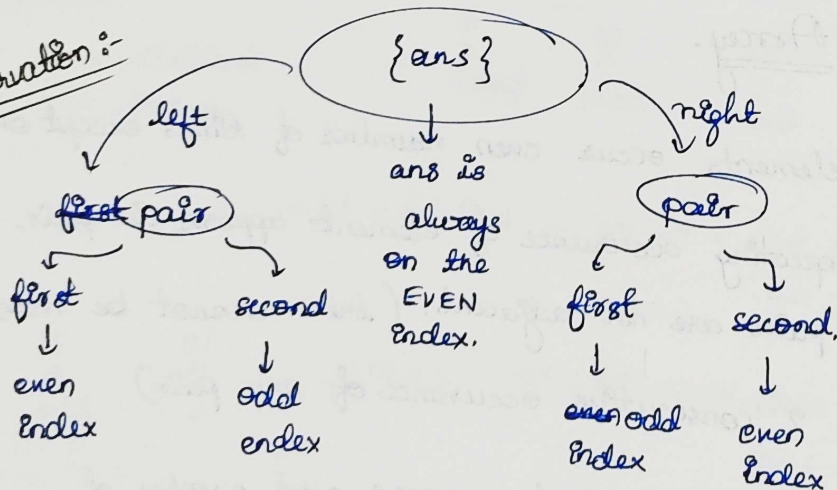 rvation :-
{ans}
left
night
ans is
always
on the
EVEN
index.
first pair
first
even
index
second
odd
endex
pair
first
even odd
index
second.
even
index